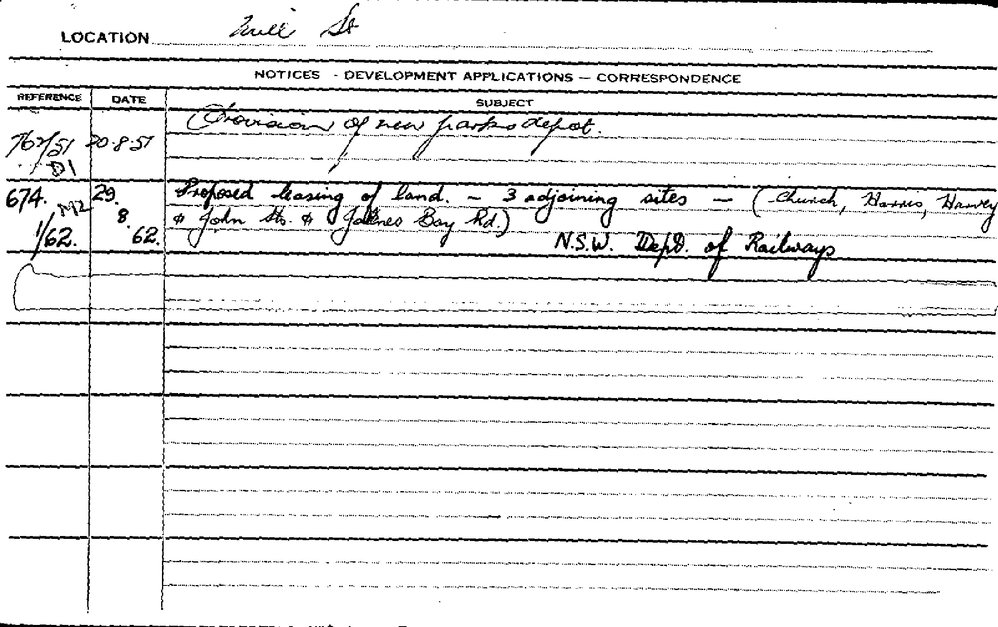 LOCATION Mill St
NOTICES - DEVELOPMENT APPLICATIONS — CORRESPONDENCE
REFERENCE DATE SUBJECT
Provision of new parks depot.
762/51 20.8.51
D1
674. 29. Proposed leasing of land. – 3 adjoining sites – (Church, Harris, Harvey
M2 8. & John Sts. & Johnes Bay Rd.)
1/62. 62. N.S.W. Dept. of Railways